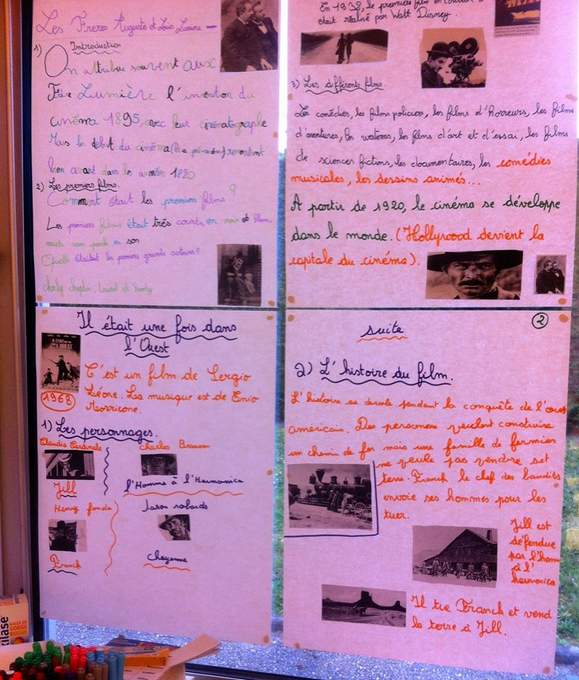 Les Frères Auguste et Louis Lumière
1) Introduction
On attribue souvent aux
Frère Lumière l'invention du
cinéma 1895, avec leur cinématographe
Mais le début du cinéma
bien avant dans le
2) Les premiers films.
Comment était les premiers films ?
Les premiers films était très courts, en noir et blanc
mais son parle ni son
Quels étaient les premiers grands acteurs ?
Charly Chaplin, Laurel et Hardy
En 1938, le premier film en couleur
était réalisé par Walt Disney.
3) Les différents films
Les comédies, les films policiers, les films d'Horreurs, les films
d'aventures, les westerns, les films d'art et d'essai, les films
de sciences fictions, les documentaires, les comédies
musicales, les dessins animés...
A partir de 1920, le cinéma se développe
dans le monde. (Hollywood devient la
capitale du cinéma).
Il était une fois dans
l'Ouest
C'est un film de Sergio
Léone. La musique est de Enio
Morricone.
1969
1) Les personnages.
Claudia Cardinale
Charles Bronson
Jill
l'Homme à l'Harmonica
Henry fonda
Jason robards
Franck
Cheyenne
suite
2
2) L'histoire du film.
L'histoire se déroule pendant la conquête de l'ouest
américain. Des personnes veulent construire
un chemin de fer mais une famille de fermier
ne veule pas vendre set
terre. Franck le chef des bandits
envoie ses hommes pour les
tuer.
Jill est
défendue
par l'homme
à l'
harmonica
Il tue Franck et vend
la terre à Jill.